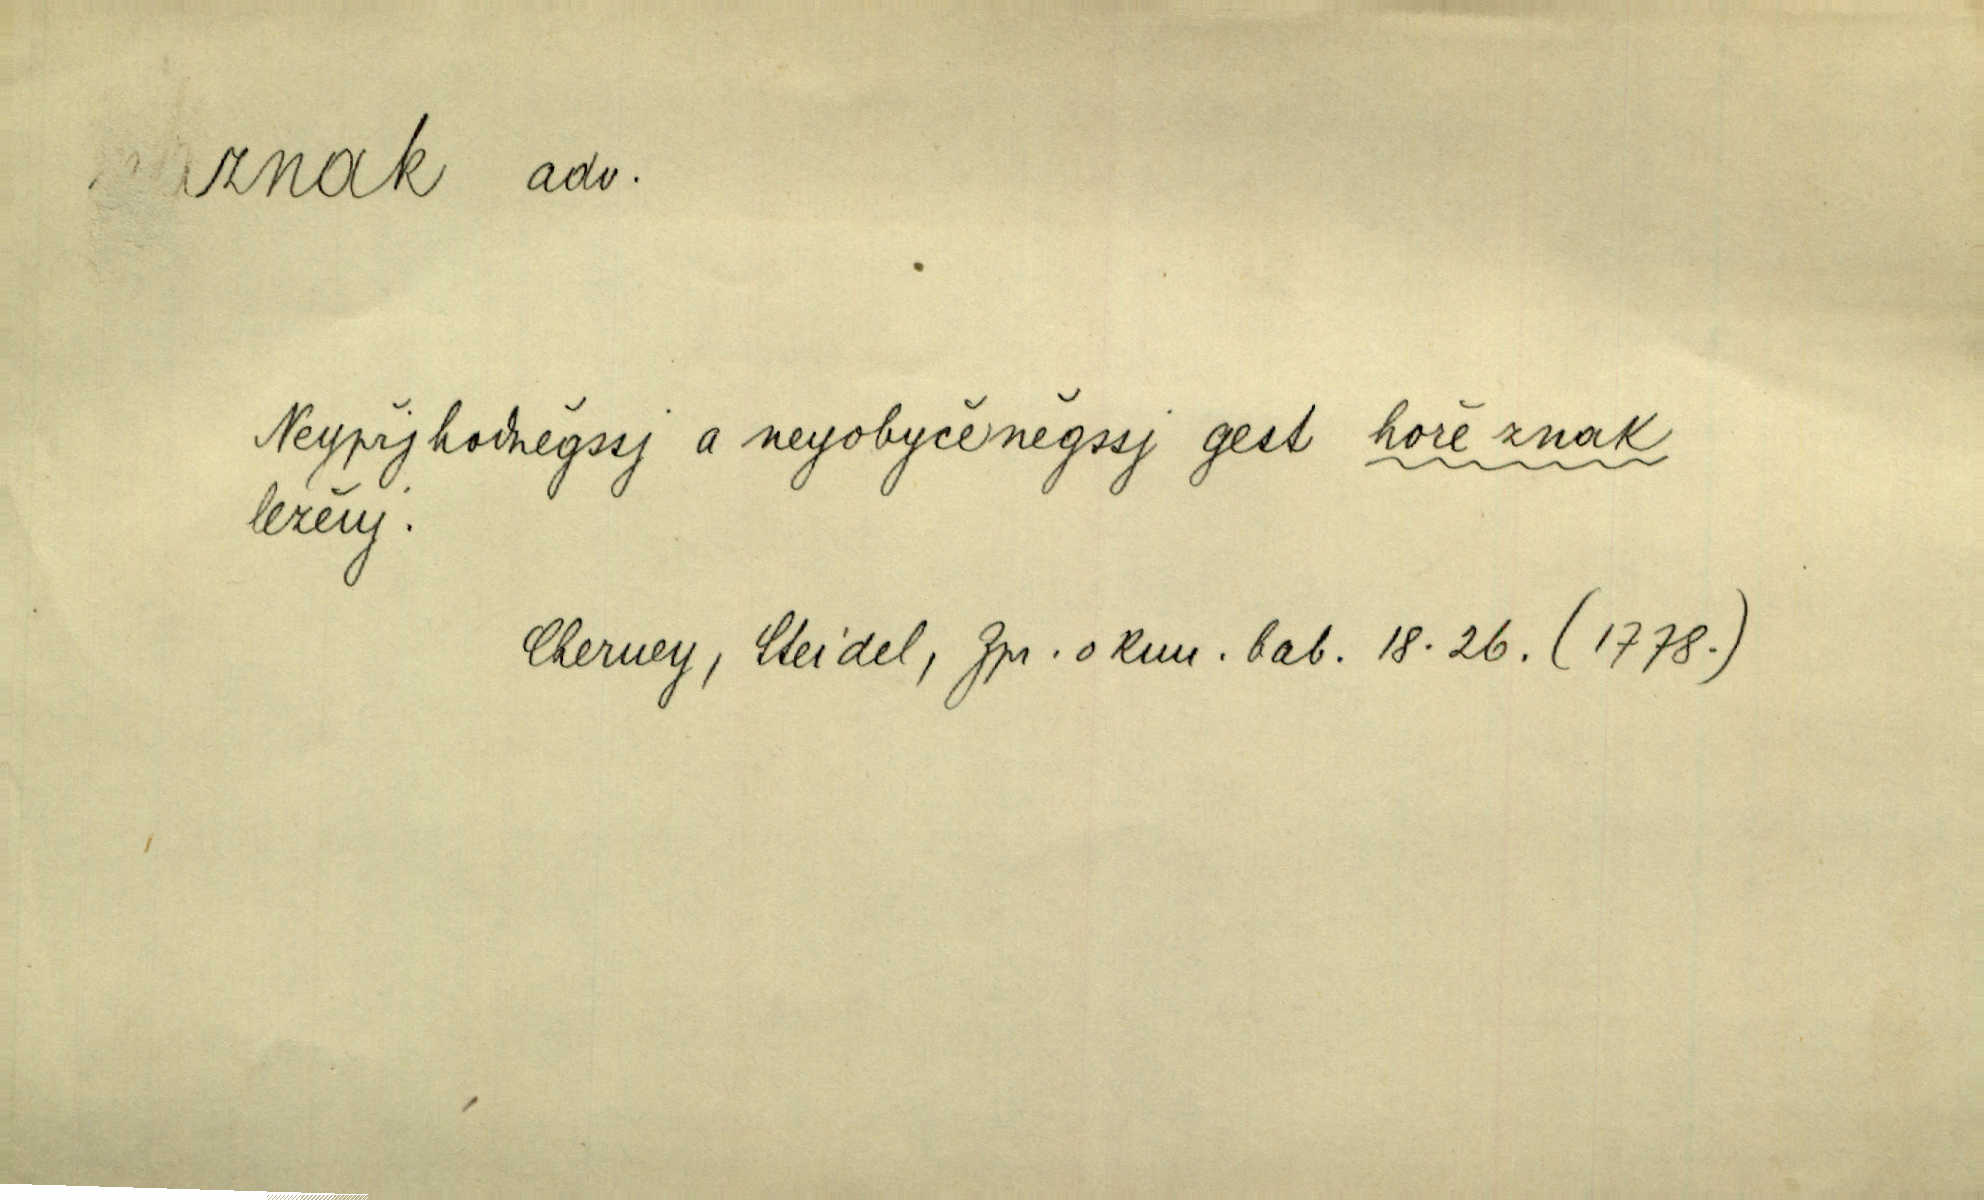 znak adv.
Neypřjhodněgssj a neyobyčeněgssj gest hoře znak
leženj.
Cherney, Steidel, Zpr. o kun. bab. 18. 26. (1778.)